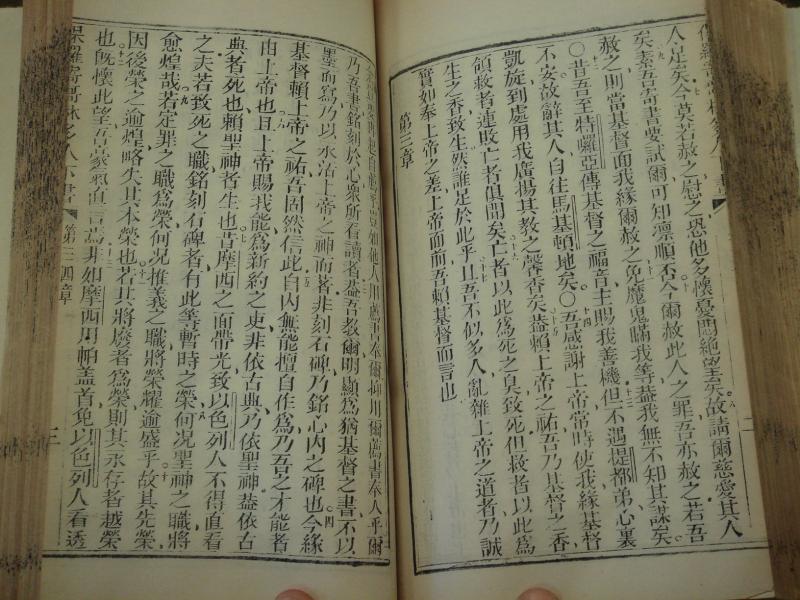 人足矣今莫若赦之慰之恐他多懷憂悶絕望矣故請爾慈愛其人
矣素吾寄書要試爾可知凜順否今爾赦此人之罪吾亦赦之若吾
赦之則當基督面我緣爾赦之免魔鬼瞞我等蓋我無不知其謀矣
○昔吾至特囉亞傳基督之福音主賜我善機但不遇提都弟心裏
不安故辭其人自往馬基頓地矣○吾感謝上帝常時使我緣基督
凱旋到處用我廣揚其教之馨香矣蓋賴上帝之祐吾乃基督之香
領救者連敗亡者俱聞矣亡者以此為死之臭致死但救者以此為
生之香致生然誰足於此乎且吾不似多人亂雜上帝之道者乃誠
實如奉上帝之差上帝面前吾賴基督而言也
第三章
乃吾書銘刻於心眾所看讀者蓋吾教爾明顯為猶基督之書不以
墨而為乃以永活上帝之神而著非刻石碑乃銘心內之碑也今緣
基督賴上帝之祐吾固然信此自內無能擅自作為乃吾之才能者
由上帝也且上帝賜我能為新約之吏非依古典乃依聖神蓋依古
典者死也賴聖神者生也昔摩西之面帶光致以色列人不得直看
之夫若致死之職銘刻石碑者有此等暫時之榮何況聖神之職將
愈煌哉若定罪之職為榮何況推義之職將榮耀逾盛乎故其先榮
因後榮之逾煌略失其本榮也若其將廢者為榮則其永存者越榮
也既懷此望吾蒙氣直言焉非如摩西用帕蓋首免以色列人看透
第三四章